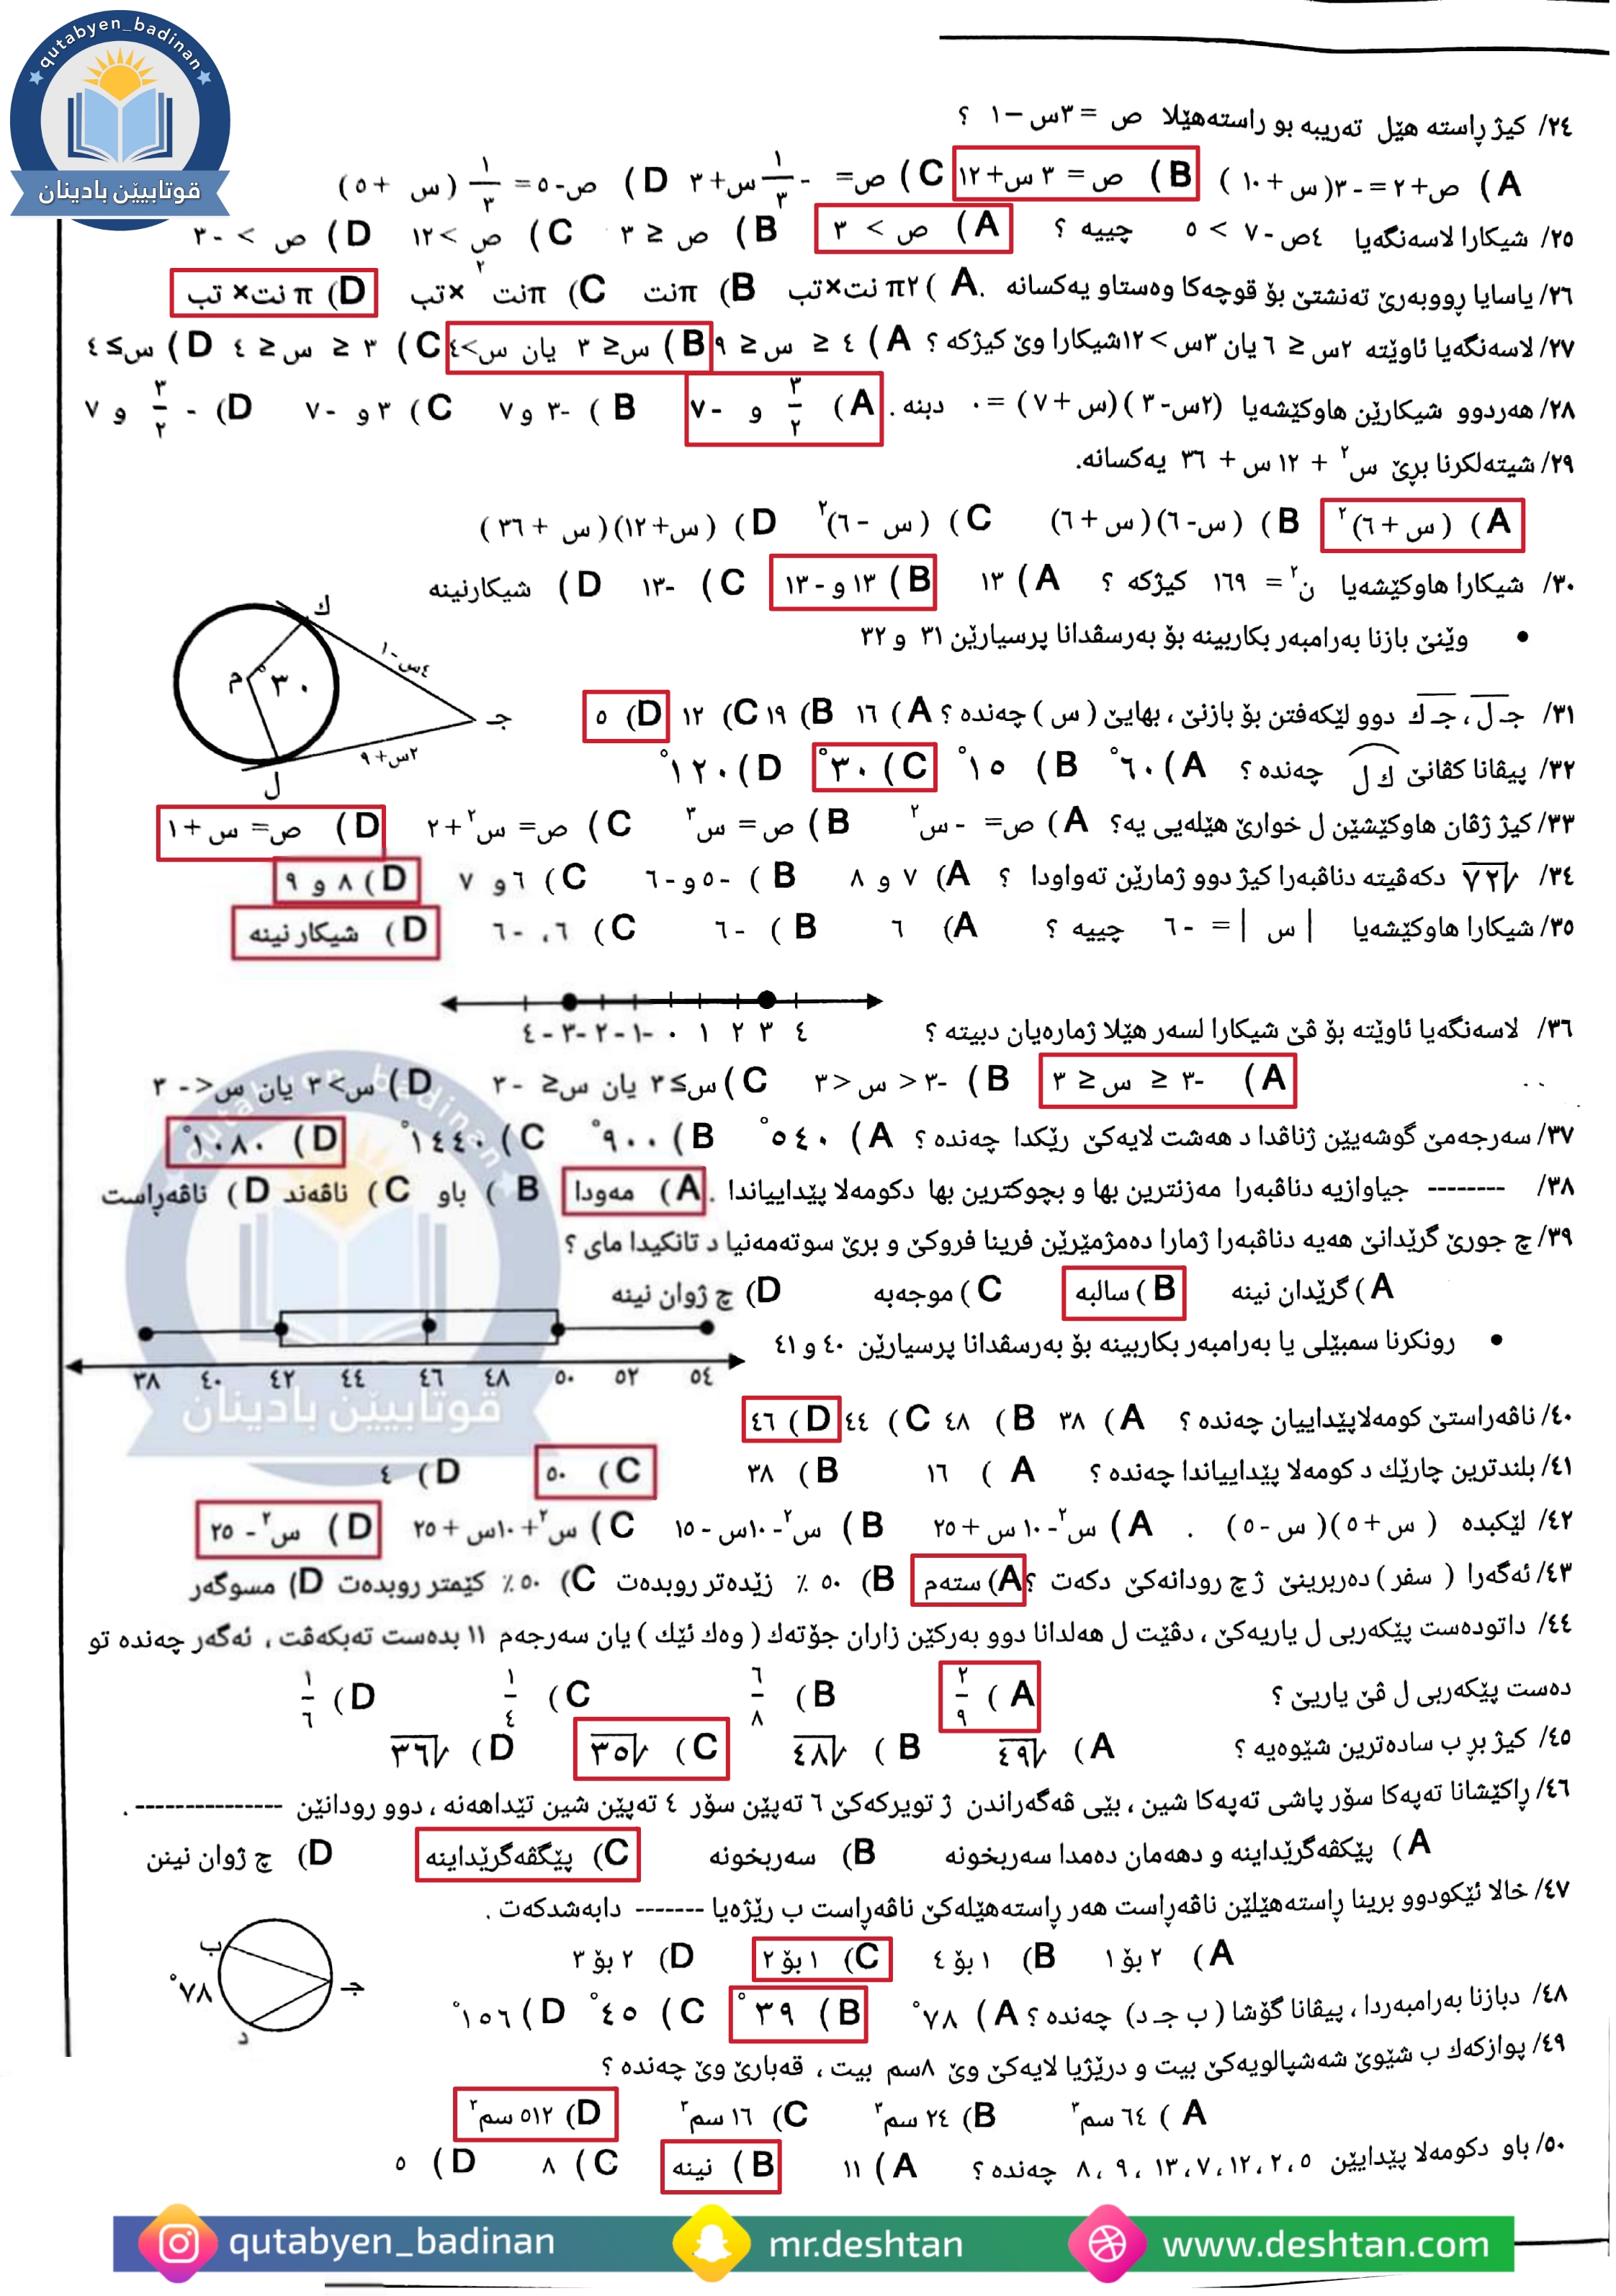 qutabyen_badinan
قوتابيێن بادينان
٢٤/ كيژ ڕاسته هێل تەريبه بو راستەهێلا ص = ٣س – ١ ؟
A ) ص+ ٢ = - ٣( س + ١٠ ) B ) ص = ٣ س+ ١٢ C ) ص= - ١/٣ س+ ٣ D ) ص- ٥ = ١/٣ ( س + ٥ )
٢٥/ شيكارا لاسەنگەيا ٤ص - ٧ > ٥ چييه ؟ A ) ص > ٣ B ) ص ≤ ٣ C ) ص < ١٢ D ) ص > - ٣
٢٦/ ياسايا ڕووبەرێ تەنشتێ بۆ قوچەكا وەستاو يەكسانه . A ) ٢π نت×تب B ) πنت C ) πنت٢ ×تب D ) π نت× تب
٢٧/ لاسەنگەيا ئاوێته ٢س ≤ ٦ يان ٣س > ١٢ شيكارا وێ كيژكه ؟ A ) ٤ ≤ س ≤ ٩ B ) س≤ ٣ يان س>٤ C ) ٣ ≤ س ≤ ٤ D ) س≥ ٤
٢٨/ هەردوو شيكارێن هاوكێشەيا (٢س- ٣ ) ( س + ٧ ) = ٠ دبنه . A ) ٣/٢ و - ٧ B ) -٣ و ٧ C ) ٣ و -٧ D ) - ٣/٢ و ٧
٢٩/ شيتەلكرنا برێ س٢ + ١٢ س + ٣٦ يەكسانه.
A ) ( س + ٦)٢ B ) ( س- ٦) ( س + ٦) C ) ( س – ٦)٢ D ) ( س+ ١٢) ( س + ٣٦ )
٣٠/ شيكارا هاوكێشەيا ن٢ = ١٦٩ كيژكه ؟ A ) ١٣ B ) ١٣ و - ١٣ C ) -١٣ D ) شيكارنينه
• وێنێ بازنا بەرامبەر بكاربينه بۆ بەرسڤدانا پرسيارێن ٣١ و ٣٢
ك
٤س - ١
م ٣٠°
جـ
٢س + ٩
ل
٣١/ جـ ل ، جـ ك دوو لێكەفتن بۆ بازنێ ، بهايێ ( س ) چەنده ؟ A ) ١٦ B ) ١٩ C ) ١٢ D ) ٥
٣٢/ پيڤانا كڤانێ ك ل چەنده ؟ A ) ٦٠° B ) ١٥° C ) ٣٠° D ) ١٢٠°
٣٣/ كيژ ژڤان هاوكێشێن ل خوارێ هێلەيى يه؟ A ) ص= - س٢ B ) ص = س٣ C ) ص= س٢+ ٢ D ) ص= س + ١
٣٤/ √٧٢ دكەڤيته دناڤبەرا كيژ دوو ژمارێن تەواودا ؟ A ) ٧ و ٨ B ) -٥ و- ٦ C ) ٦ و ٧ D ) ٨ و ٩
٣٥/ شيكارا هاوكێشەيا | س | = - ٦ چييه ؟ A ) ٦ B ) - ٦ C ) ٦ ، -٦ D ) شيكار نينه
- ٤ - ٣ - ٢ - ١ ٠ ١ ٢ ٣ ٤
٣٦/ لاسەنگەيا ئاوێته بۆ ڤێ شيكارا لسەر هێلا ژمارەيان دبيته ؟
A ) -٣ ≤ س ≤ ٣ B ) -٣ < س < ٣ C ) س≥ ٣ يان س≤ - ٣ D ) س> ٣ يان س< - ٣
٣٧/ سەرجەمێ گوشەيێن ژناڤدا د هەشت لايەكێ رێكدا چەنده ؟ A ) ٥٤٠° B ) ٩٠٠° C ) ١٤٤٠° D ) ١٠٨٠°
٣٨/ -------- جياوازيه دناڤبەرا مەزنترين بها و بچوكترين بها دكومەلا پێداييانـدا . A ) مەودا B ) باو C ) ناڤەند D ) ناڤەڕاست
٣٩/ چ جورێ گرێدانێ هەيه دناڤبەرا ژمارا دەمژمێرێن فرينا فروكێ و برێ سوتەمەنيا د تانكيدا ماى ؟
A ) گرێدان نينه B ) سالبه C ) موجەبه D ) چ ژوان نينه
• رونكرنا سمبێلى يا بەرامبەر بكاربينه بۆ بەرسڤدانا پرسيارێن ٤٠ و ٤١
٣٨ ٤٠ ٤٢ ٤٤ ٤٦ ٤٨ ٥٠ ٥٢ ٥٤
قوتابيێن بادينان
٤٠/ ناڤەراستێ كومەلاپێداييان چەنده ؟ A ) ٣٨ B ) ٤٨ C ) ٤٤ D ) ٤٦
٤١/ بلندترين چارێك د كومەلا پێداييانـدا چەنده ؟ A ) ١٦ B ) ٣٨ C ) ٥٠ D ) ٤
٤٢/ لێكبده ( س + ٥ )( س - ٥ ) . A ) س٢- ١٠ س + ٢٥ B ) س٢- ١٠س - ١٥ C ) س٢+ ١٠س + ٢٥ D ) س٢- ٢٥
٤٣/ ئەگەرا ( سفر ) دەربرينێ ژ چ رودانەكێ دكەت ؟ A ) ستەم B ) ٥٠ ٪ زێدەتر روبدەت C ) ٥٠ ٪ كێمتر روبدەت D ) مسوگەر
٤٤/ داتودەست پێكەربى ل ياريەكێ ، دڤێت ل هەلدانا دوو بەركێن زاران جۆتەك ( وەك ئێك ) يان سەرجەم ١١ بدەست تەبكەڤت ، ئەگەر چەنده تو
دەست پێكەربى ل ڤێ ياريێ ؟ A ) ٢/٩ B ) ٦/٨ C ) ١/٤ D ) ١/٦
٤٥/ كيژ بڕ ب سادەترين شێوەيه ؟ A ) √٤٩ B ) √٤٨ C ) √٣٥ D ) √٣٦
٤٦/ ڕاكێشانا تەپەكا سۆر پاشى تەپەكا شين ، بێى ڤەگەراندن ژ تويركەكێ ٦ تەپێن سۆر ٤ تەپێن شين تێداهەنه ، دوو رودانێن --------------- .
A ) پێكڤەگرێداينه و دهەمان دەمدا سەربخونه B ) سەربخونه C ) پێكڤەگرێداينه D ) چ ژوان نينن
٤٧/ خالا ئێكودوو برينا ڕاستەهێلێن ناڤەڕاست هەر ڕاستەهێلەكێ ناڤەڕاست ب رێژەيا ------- دابەشدكەت .
A ) ٢ بۆ ١ B ) ١ بۆ ٤ C ) ١ بۆ ٢ D ) ٢ بۆ ٣
ب
٧٨°
جـ
د
٤٨/ دبازنا بەرامبەردا ، پيڤانا گۆشا ( ب جـ د) چەنده ؟ A ) ٧٨° B ) ٣٩° C ) ٤٥° D ) ١٥٦°
٤٩/ پوازكەك ب شێوێ شەشپالويەكێ بيت و درێژيا لايەكێ وێ ٨سم بيت ، قەبارێ وێ چەنده ؟
A ) ٦٤ سم٣ B ) ٢٤ سم٣ C ) ١٦ سم٣ D ) ٥١٢ سم٣
٥٠/ باو دكومەلا پێدايێن ٥ ، ٢ ، ١٢ ، ٧ ، ١٣ ، ٩ ، ٨ چەنده ؟ A ) ١١ B ) نينه C ) ٨ D ) ٥
qutabyen_badinan mr.deshtan www.deshtan.com